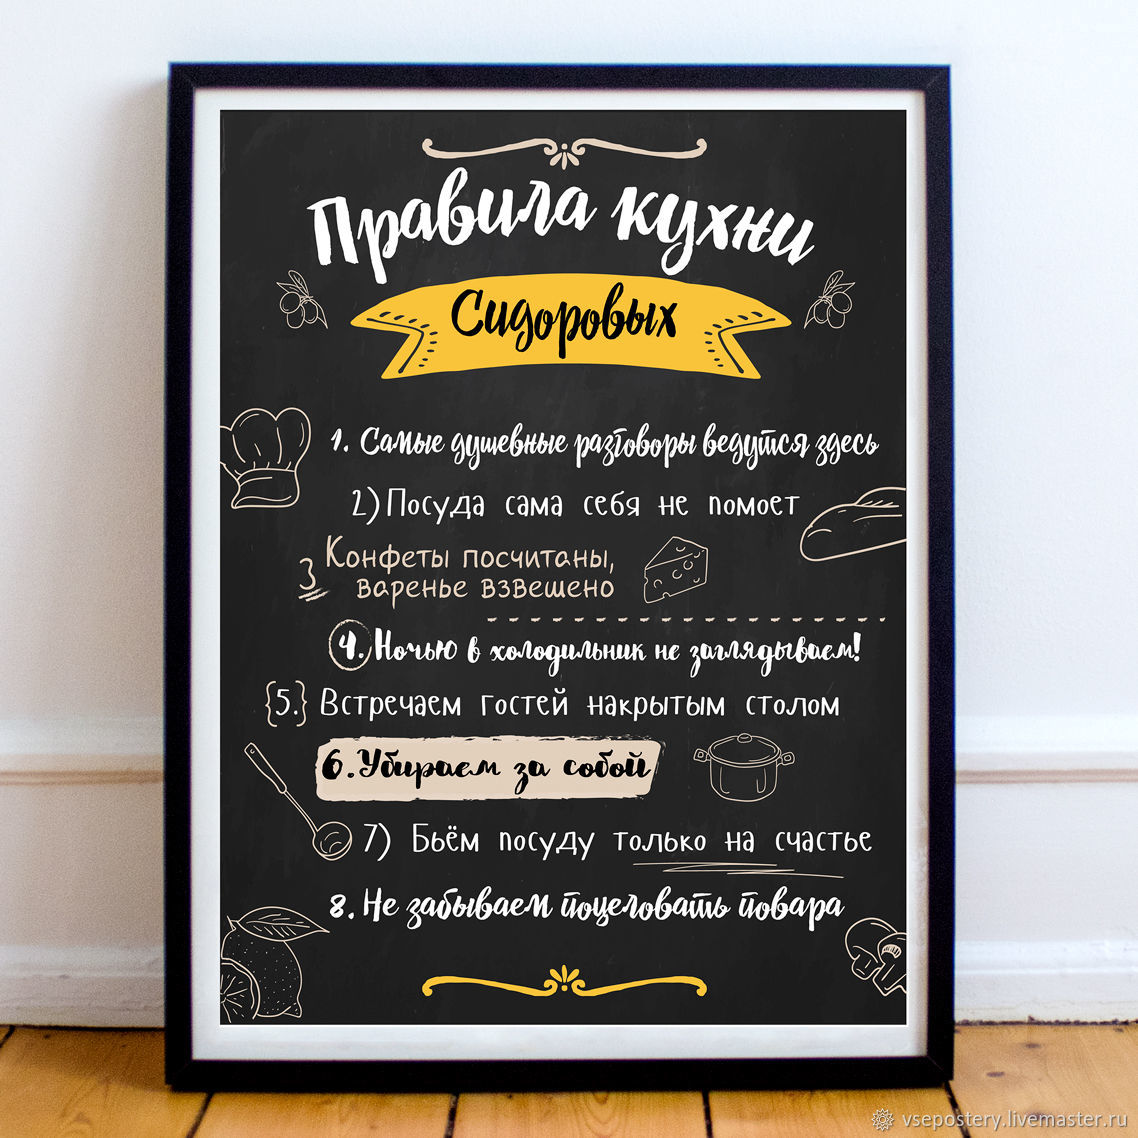 Правила кухни
Сидоровых
1. Самые душевные разговоры ведутся здесь
2) Посуда сама себя не помоет
3 Конфеты посчитаны,
варенье взвешено
4. Ночью в холодильник не заглядываем!
{5.} Встречаем гостей накрытым столом
6. Убираем за собой
7) Бьём посуду только на счастье
8. Не забываем поцеловать повара
vsepostery.livemaster.ru